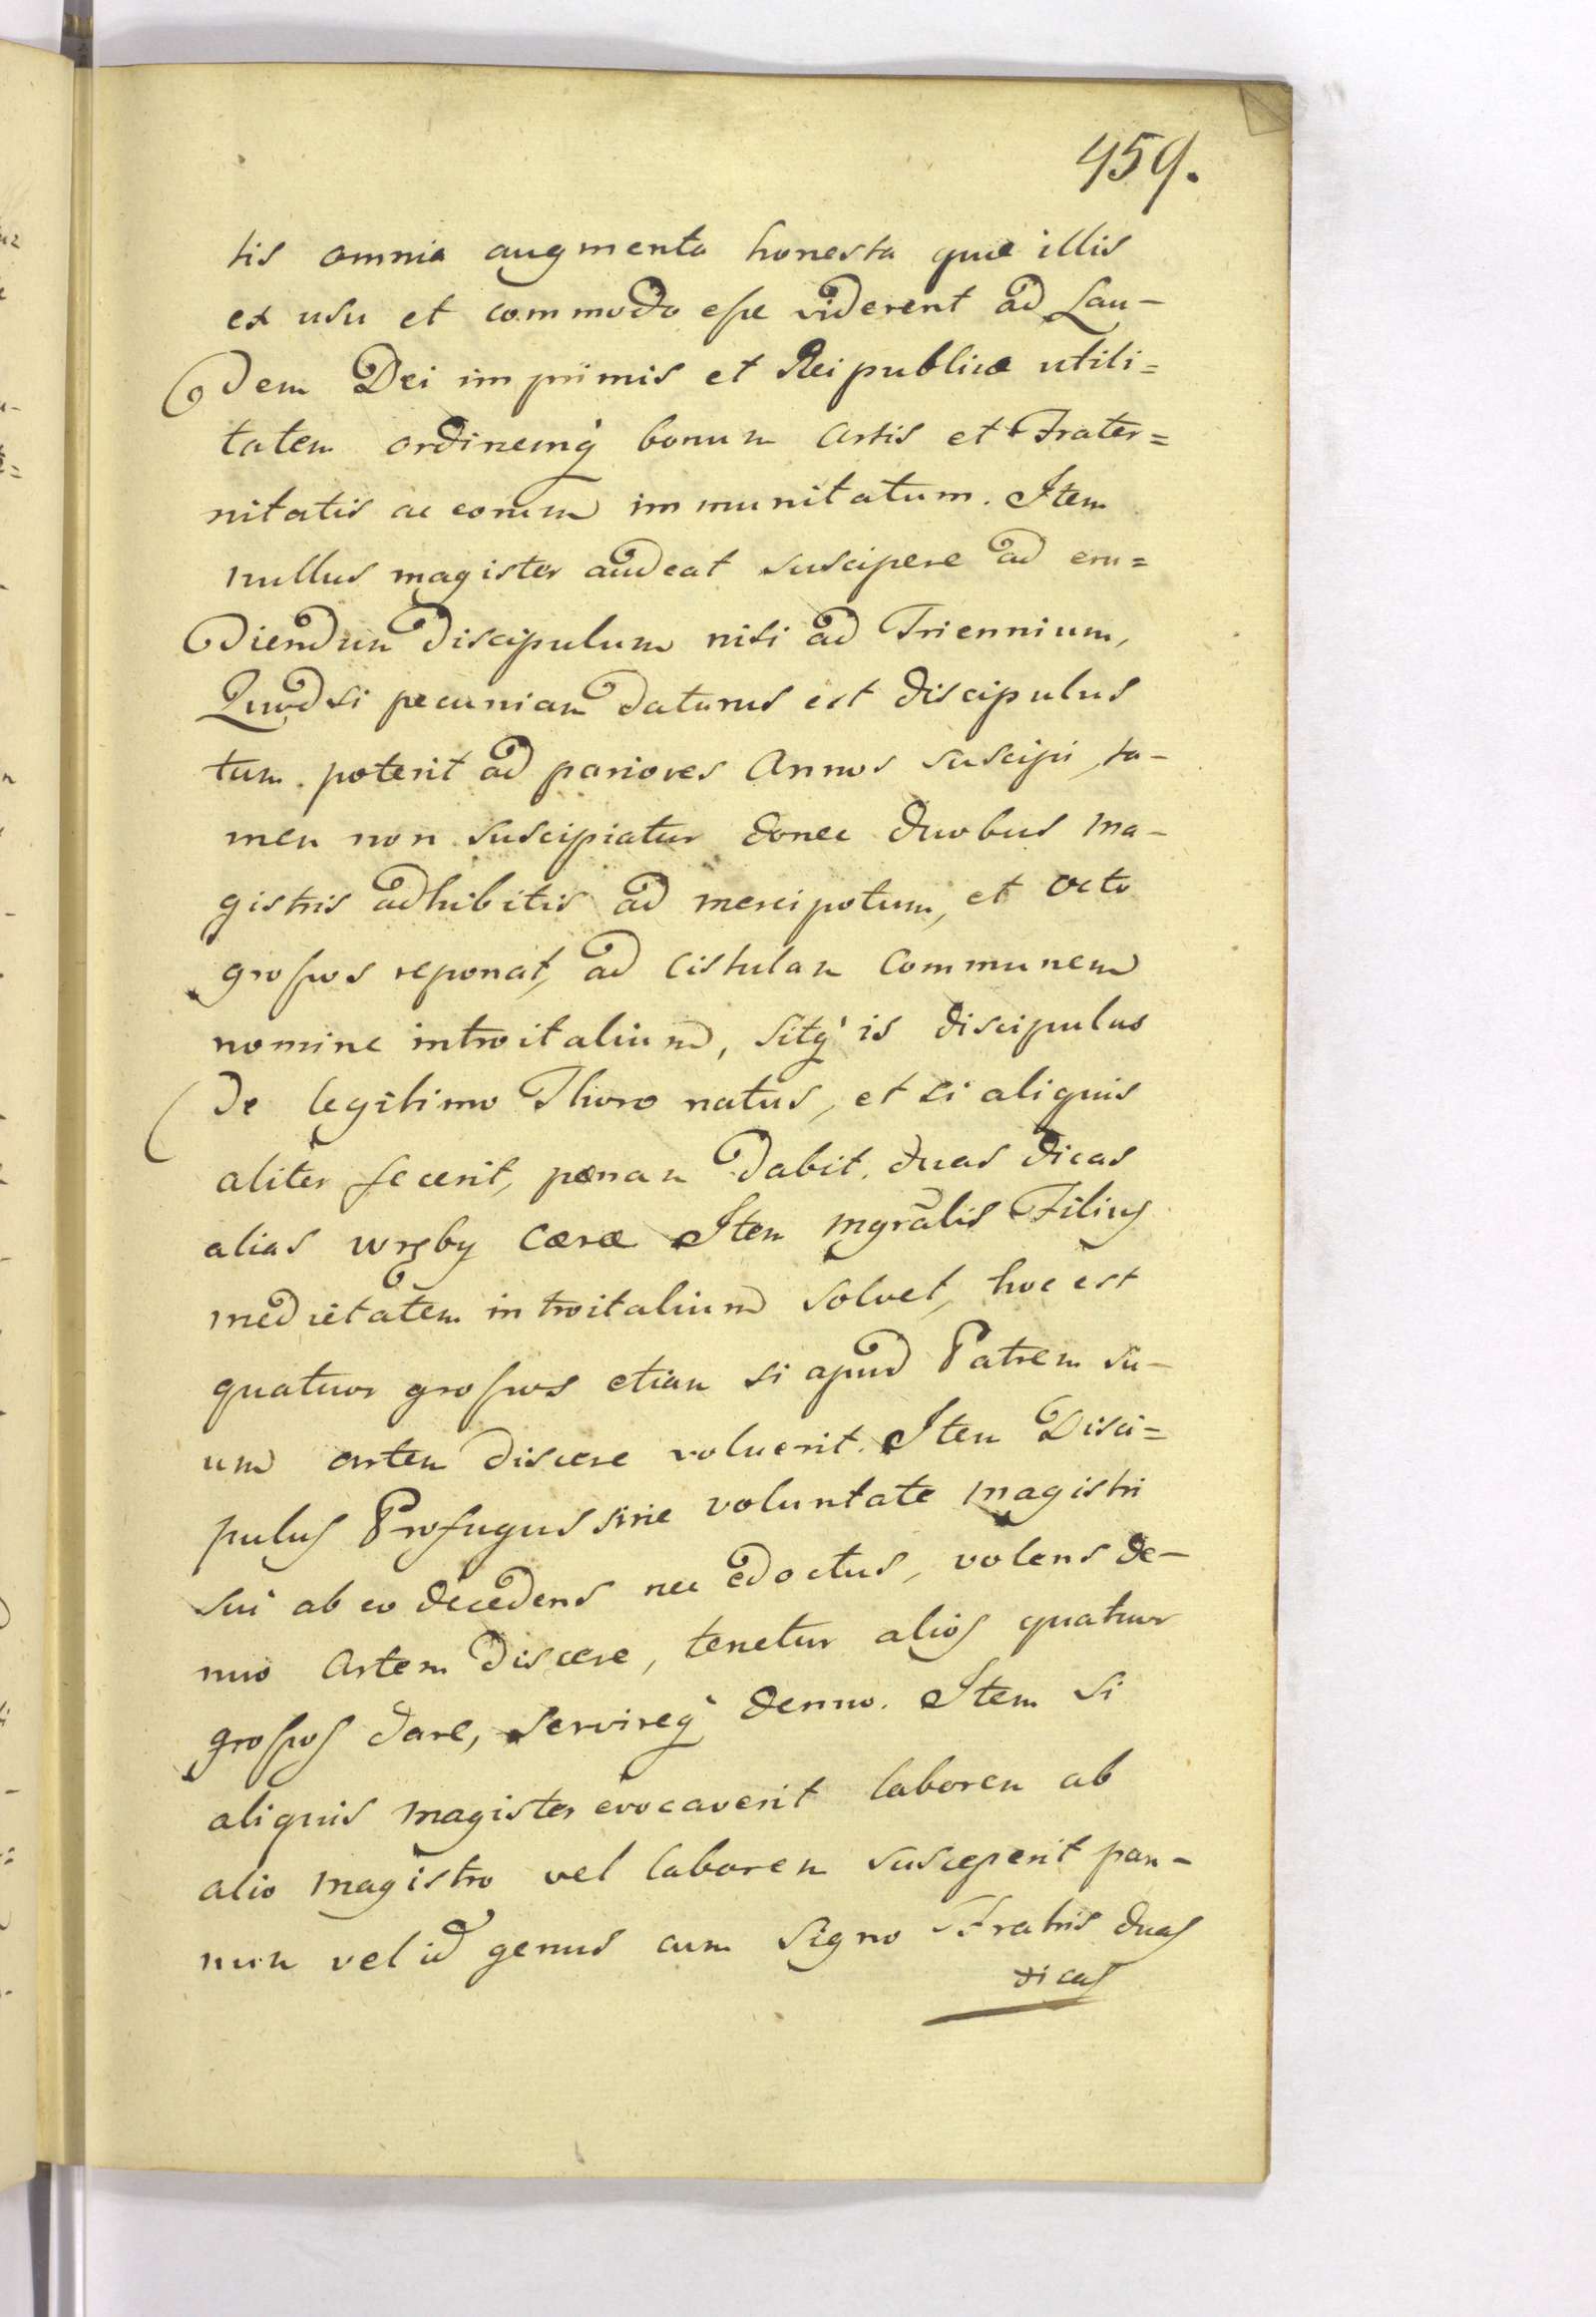 459.
tis omnia augmenta honesta quae illis
ex usu et commodo esse viderent ad Lau-
dem Dei imprimis et Reipublicae utili=
tatem ordinemq' bonum artis et Frater=
nitatis ac eorum immunitatum. Item
nullus magister audeat suscipere ad eru=
diendum discipulum nisi ad Triennium,
Quod si pecuniam daturus est discipulus
tum poterit ad pariores Annos suscipi, ta-
men non suscipiatur donec duobus ma-
gistris adhibitis ad mercipotum, et octo
grossos reponat, ad cistulam communem
nomine introitalium, sitq' is discipulus
de legitimo Thoro natus, et si aliquis
aliter fecerit, poenam dabit duas dicas
alias wręby caerae Item mgralis Filius
medietatem introitalium solvet, hoc est
quatuor grossos etiam si apud Patrem su-
um artem discere voluerit. Item Disci=
pulus Profugus sine voluntate magistri
sui ab eo decedens nec edoctus, volens de-
nuo Artem discere, tenetur alios quatuor
grossos dare, servireq' denuo. Item si
aliquis magister evocaverit laborem ab
alio magistro vel laborem susceperit pan-
num vel id genus cum signo Fratris duas
dicas